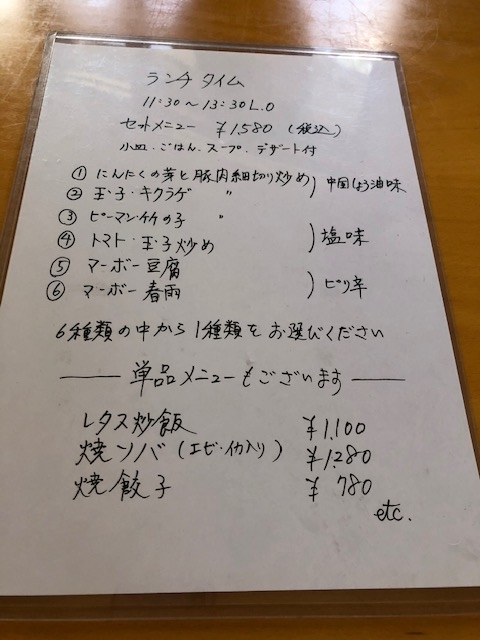 ランチ タイム
11:30～13:30 L.O
セットメニュー ¥1,580 (税込)
小皿・ごはん、スープ、デザート付
① にんにくの芽と豚肉細切り炒め
② 玉子・キクラゲ 〃 ) 中国しょう油味
③ ピーマン・竹の子 〃
④ トマト・玉子炒め ) 塩味
⑤ マーボー豆腐
⑥ マーボー春雨 ) ピリ辛
6種類の中から1種類をお選びください
単品メニューもございます
レタス炒飯 ¥1,100
焼ソバ (エビ・イカ入り) ¥1,280
焼餃子 ¥780
etc.